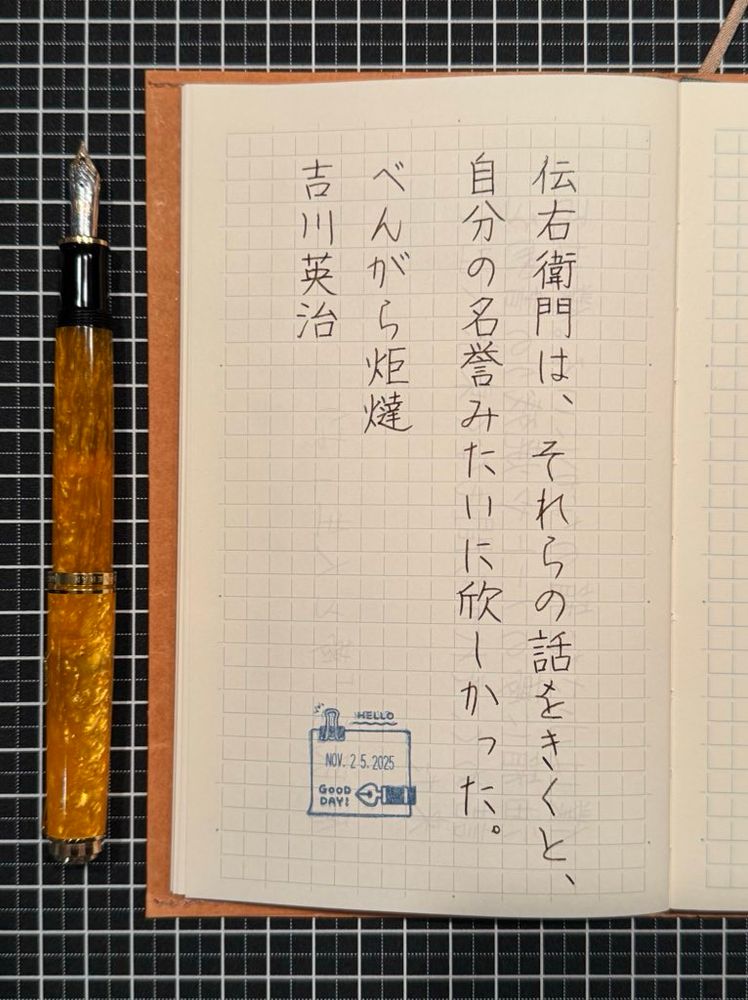 伝右衛門は、それらの話をきくと、
自分の名誉みたいに欣しかった。
べんがら炬燵
吉川英治
HELLO
NOV. 25. 2025
GOOD
DAY!